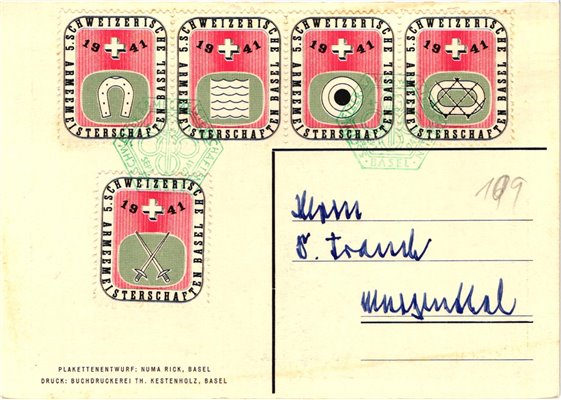 5. SCHWEIZERISCHE ARMEEMEISTERSCHAFTEN BASEL
1941
5. SCHWEIZERISCHE ARMEEMEISTERSCHAFTEN BASEL
1941
5. SCHWEIZERISCHE ARMEEMEISTERSCHAFTEN BASEL
1941
5. SCHWEIZERISCHE ARMEEMEISTERSCHAFTEN BASEL
1941
BASEL
5. SCHWEIZERISCHE ARMEEMEISTERSCHAFTEN BASEL
1941
199
Herrn
Murgenthal
PLAKETTENENTWURF: NUMA RICK, BASEL
DRUCK: BUCHDRUCKEREI TH. KESTENHOLZ, BASEL